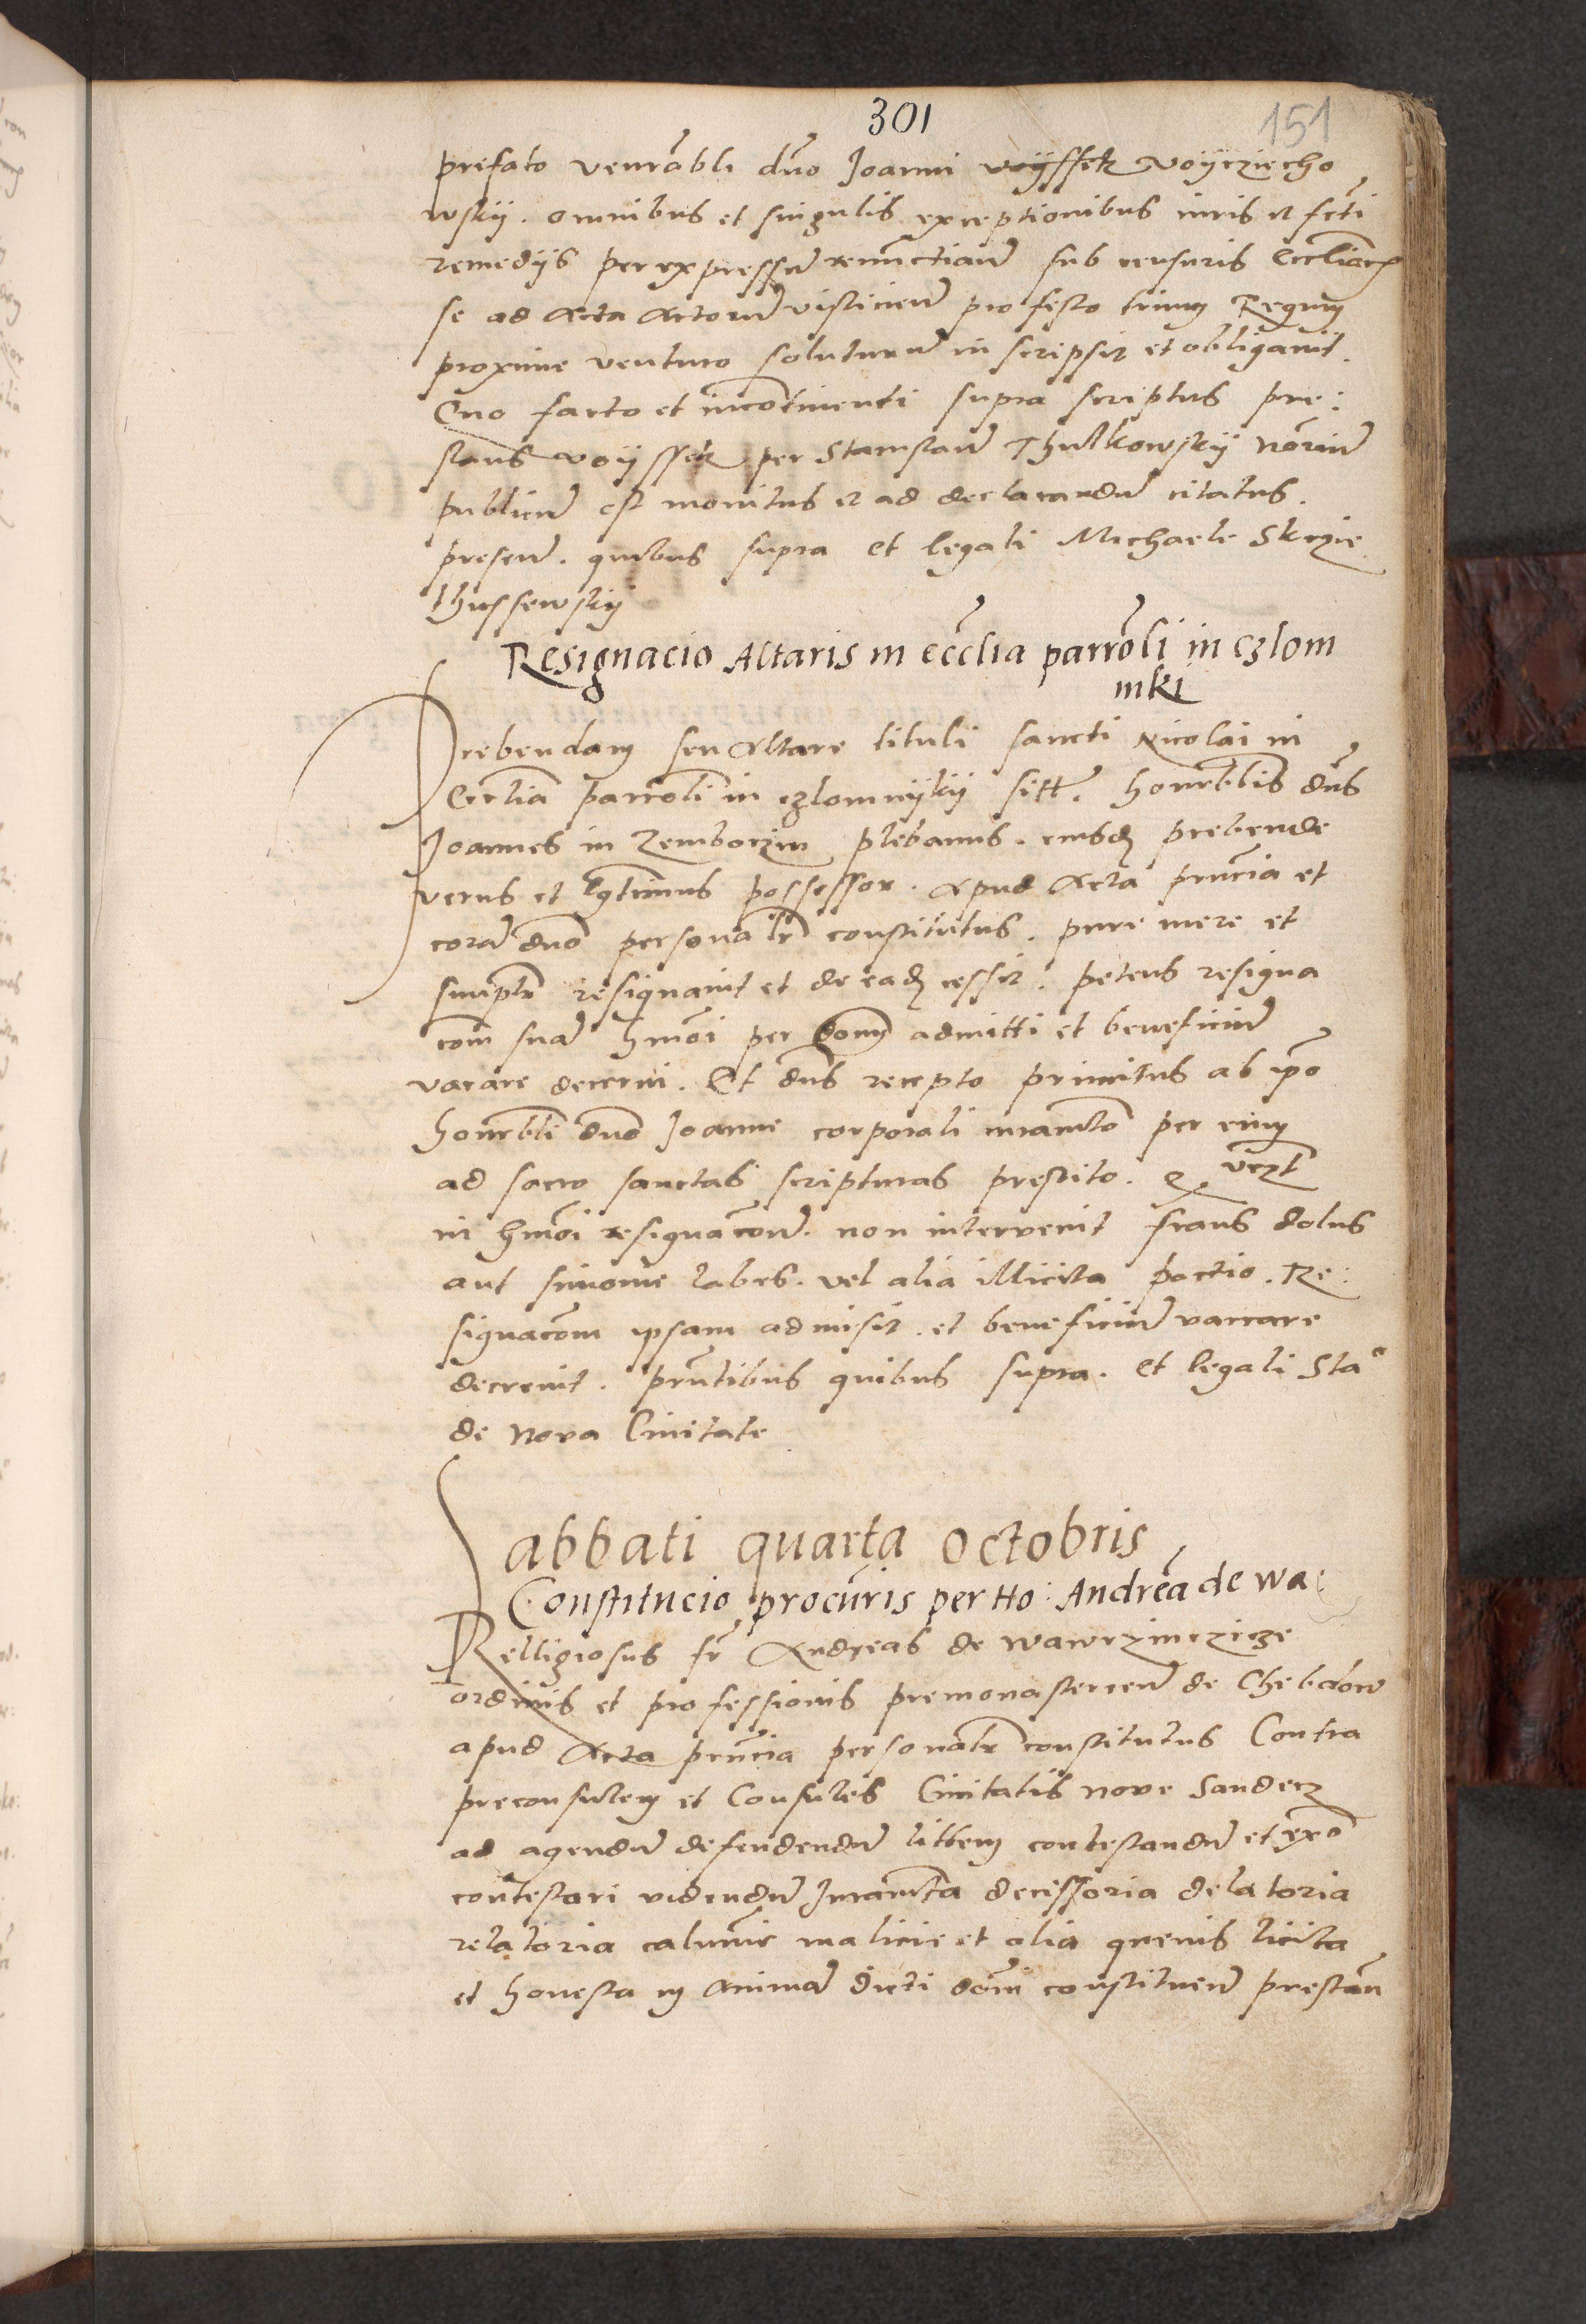 301
151
prefato venerabli dno Joanni woyssek Voycziecho
wskij . omnibus et singulis exceptionibus iuris et fcti
remedijs per expressum renunctiavit sub censuris Eccliacis
se ad Acta Actorum visticien pro festo trium Regum
proxime venturo soluturum in scripsit et obligavit .
Quo facto et incotinenti supra scriptus pre :
stans woyssek per Stanislaum Thulkowskij Norium
publicum est monitus et ad declarandum citatus .
presen . quibus supra et legali Michaele Skrzie
thussewskij
Resignacio Altaris in ecclia parroli in Czlom
niki
Prebendam seu Altare tituli sancti Nicolai in
Ecclia parroli in Czlomnykij sitt . honorablis dns
Joannes in Zemborzin plebanus . eiusd prebende
verus et lgtimus possessor . Apud Acta pncia et
cora dno personalr constitutus . pure mere et
simplr resignavit et de ead cessit . petens resigna
com sua hmoi per Dom admitti et beneficium
vacare decerni . Et dns recepto primitus ab ipo
honorbli dno Joanne corporali iuramto per eum
ad sacro sanctas scripturas prestito . q vczt
in hmoi resignacone . non intervenit fraus dolus
aut simonie labes . vel alia illicita pactio . Re :
signacom ipsam admisit . et beneficium vaccare
decrevit . pntibus quibus supra . et legali Sta
de Nova Civitate
Sabbati quarta Octobris
Constitucio procuris per Ho : Andrea de wa
Relligiosus fr Andreas de Wawrzinczicze
ordinis et professionis premonasteriens de Chebdow
apud Acta pncia personalr constitutus Contra
preconsulem et Consules Civitatis Nove Sandecz
ad agendum defendendum littem contestandum et exo
contestari videndum Juramta decissoria delatoria
relatoria calumnie malicie et alia quevis licita
et honesta in Animam dicti domi constituen prestan